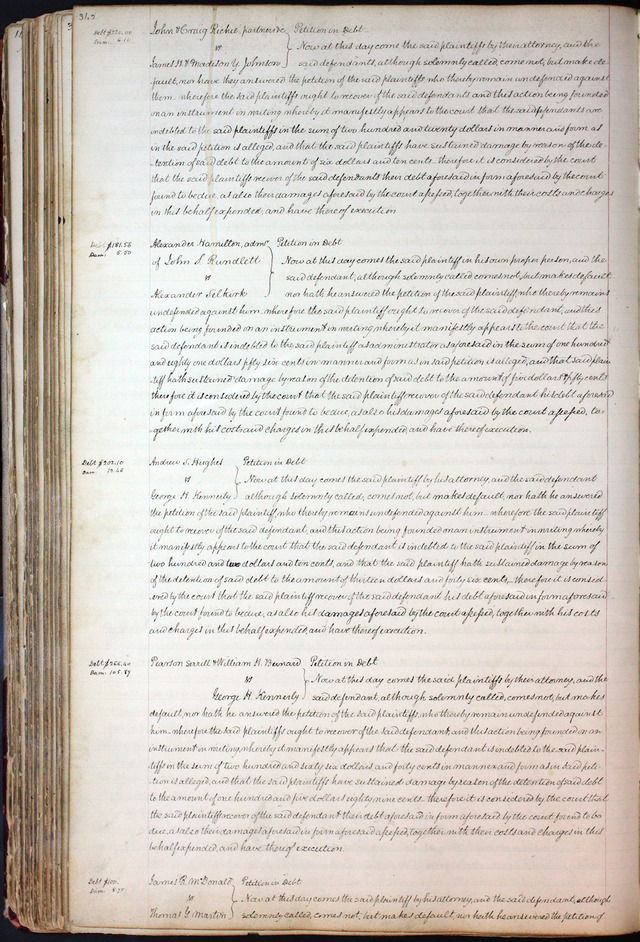 Debt $220.00
Dam. 6.10
John & Craig Richie, partners &c Petition in Debt
vs Now at this day come the said plaintiffs by their attorney, and the
James H. & Madison Y. Johnson said defendants, although solemnly called, come not, but make de-
fault, nor have they answered the petition of the said plaintiffs who thereby remain undefended against
them. wherefore the said plaintiffs ought to recover of the said defendants and this action being founded
on an instrument in writing whereby it manifestly appears to the court that the said defendants are
indebted to the said plaintiffs in the sum of two hundred and twenty dollars in manner and form as
in the said petition is alleged, and that the said plaintiffs have sustained damage by reason of the de-
tention of said debt to the amount of six dollars and ten cents. therefore it is considered by the court
that the said plaintiffs recover of the said defendants their debt aforesaid in form aforesaid by the court
found to be due, as also their damages aforesaid by the court assessed, together with their costs and charges
in this behalf expended, and have thereof execution.
Debt $181.56
Dam. 5.50
Alexander Hamilton, admr. Petition in Debt
of John S. Rundlett Now at this day comes the said plaintiff in his own proper person, and the
vs said defendant, although solemnly called comes not, but makes default
Alexander Selkirk nor hath he answered the petition of the said plaintiff, who thereby remains
undefended against him. wherefore the said plaintiff ought to recover of the said defendant, and this
action being founded on an instrument in writing whereby it manifestly appears to the court that the
said defendant is indebted to the said plaintiff as administrator as aforesaid in the sum of one hundred
and eighty one dollars fifty six cents in manner and form as in said petition is alleged, and that said plain-
tiff hath sustained damage by reason of the detention of said debt to the amount of five dollars & fifty cents
therefore it is considered by the court that the said plaintiff recover of the said defendant his debt aforesaid
in form aforesaid by the court found to be due, as also his damages aforesaid by the court assessed, to-
gether with his costs and charges in this behalf expended, and have thereof execution.
Debt $202.10
Dam 13.46
Andrew S. Hughes Petition in Debt
vs Now at this day comes the said plaintiff by his attorney, and the said defendant
George H. Kennerly although solemnly called, comes not, but makes default, nor hath he answered
the petition of the said plaintiff who thereby remains undefended against him. wherefore the said plaintiff
ought to recover of the said defendant, and this action being founded on an instrument in writing whereby
it manifestly appears to the court that the said defendant is indebted to the said plaintiff in the sum of
two hundred and two dollars and ten cents, and that the said plaintiff hath sustained damage by reason
of the detention of said debt to the amount of thirteen dollars and forty six cents, therefore it is consid-
ered by the court that the said plaintiff recover of the said defendant his debt aforesaid in form aforesaid
by the court found to be due, as also his damages aforesaid by the court assessed, together with his costs
and charges in this behalf expended, and have thereof execution.
Debt $266.40
Dam. 105.89
Pearson Serrill & William H. Bernard Petition in Debt
vs Now at this day comes the said plaintiffs by their attorney, and the
George H. Kennerly said defendant, although solemnly called, comes not, but makes
default, nor hath he answered the petition of the said plaintiffs, who thereby remain undefended against
him. wherefore the said plaintiffs ought to recover of the said defendant, and this action being founded on an
instrument in writing whereby it manifestly appears that the said defendant is indebted to the said plain-
tiffs in the sum of two hundred and sixty six dollars and forty cents in manner and form as in said peti-
tion is alleged, and that the said plaintiffs have sustained damage by reason of the detention of said debt
to the amount of one hundred and five dollars eighty nine cents. therefore it is considered by the court that
the said plaintiffs recover of the said defendant their debt aforesaid in form aforesaid by the court found to be
due, as also their damages aforesaid in form aforesaid assessed, together with their costs and charges in this
behalf expended, and have thereof execution.
Debt $100.
Dam. 8.75
James R. McDonald Petition in Debt
vs Now at this day comes the said plaintiff by his attorney, and the said defendant, although
Thomas G. Martin solemnly called, comes not, but makes default, nor hath he answered the petition of